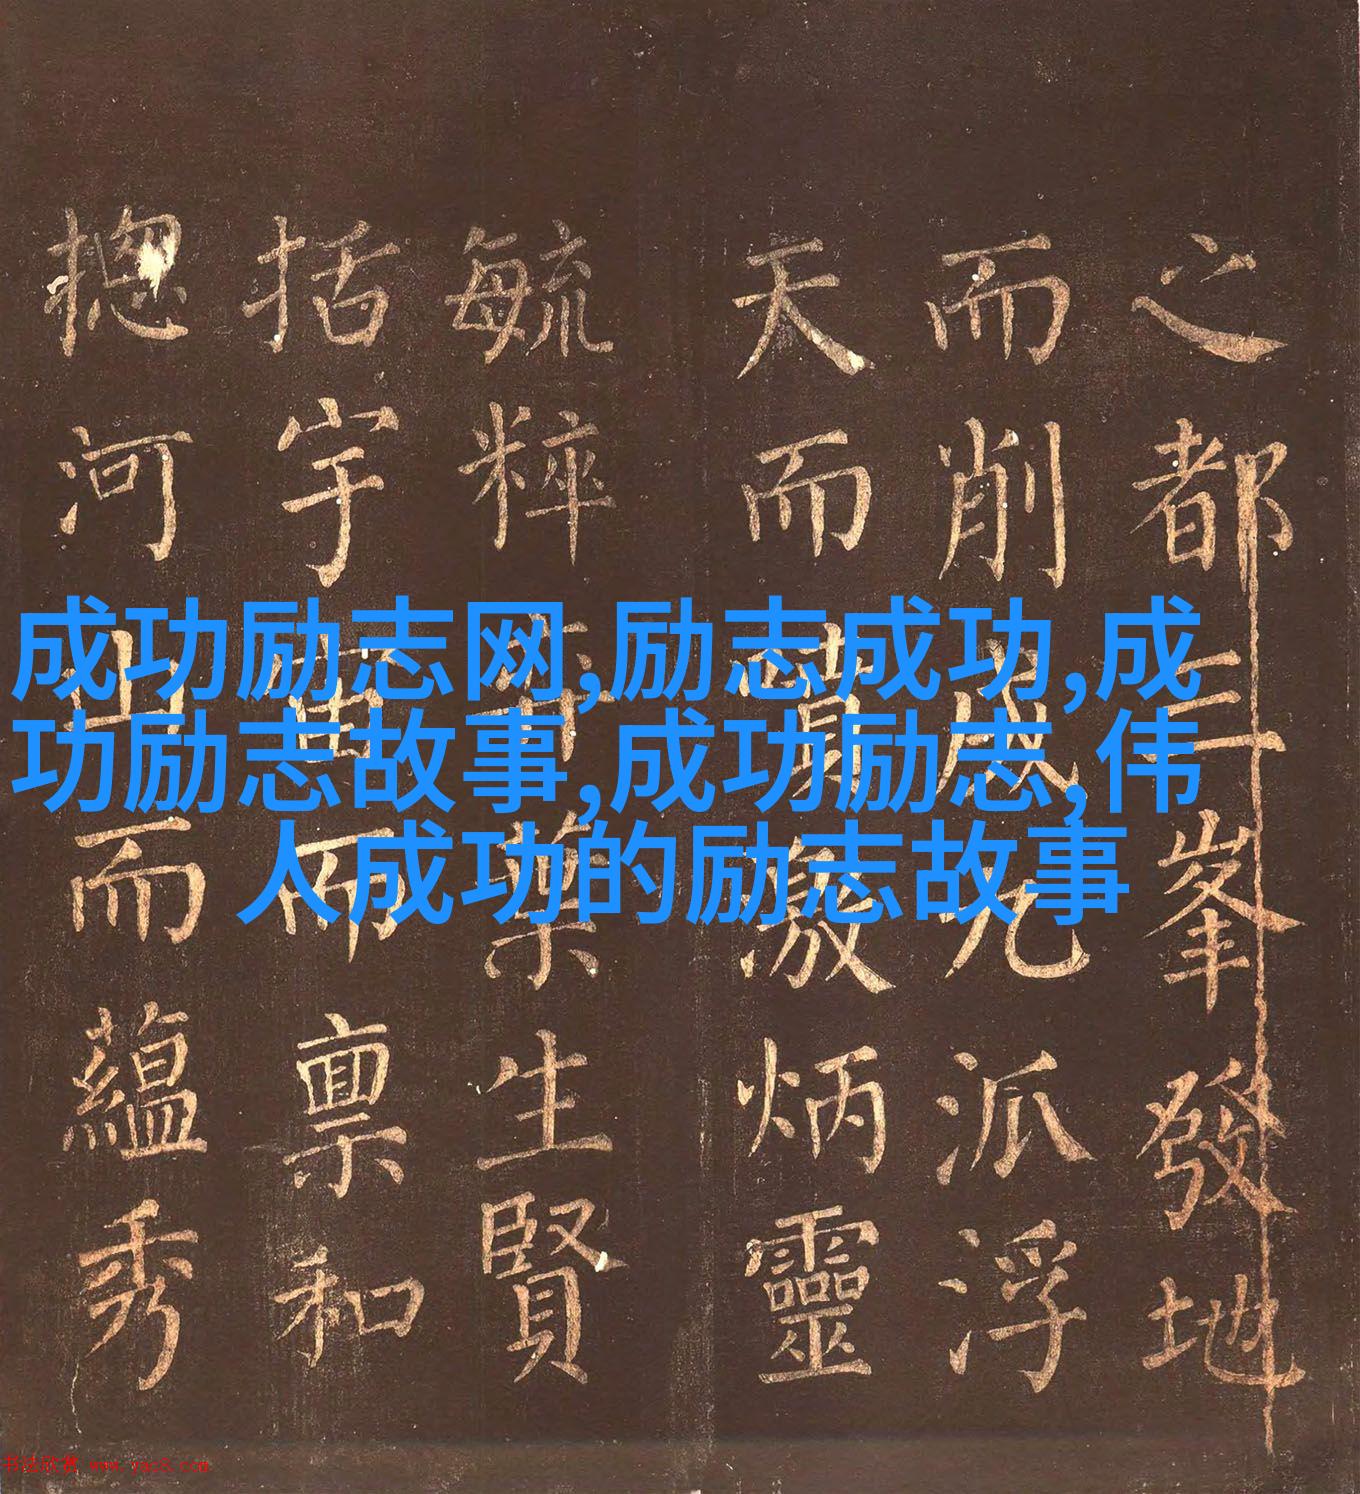 之都三峯發地
而削成九派浮
天而噴激炳靈
毓粹生賢
括宇宙而稟和
揔河山而蘊秀
成功励志网,励志成功,成
功励志故事,成功励志,伟
人成功的励志故事
书法欣赏 www.yac8.com